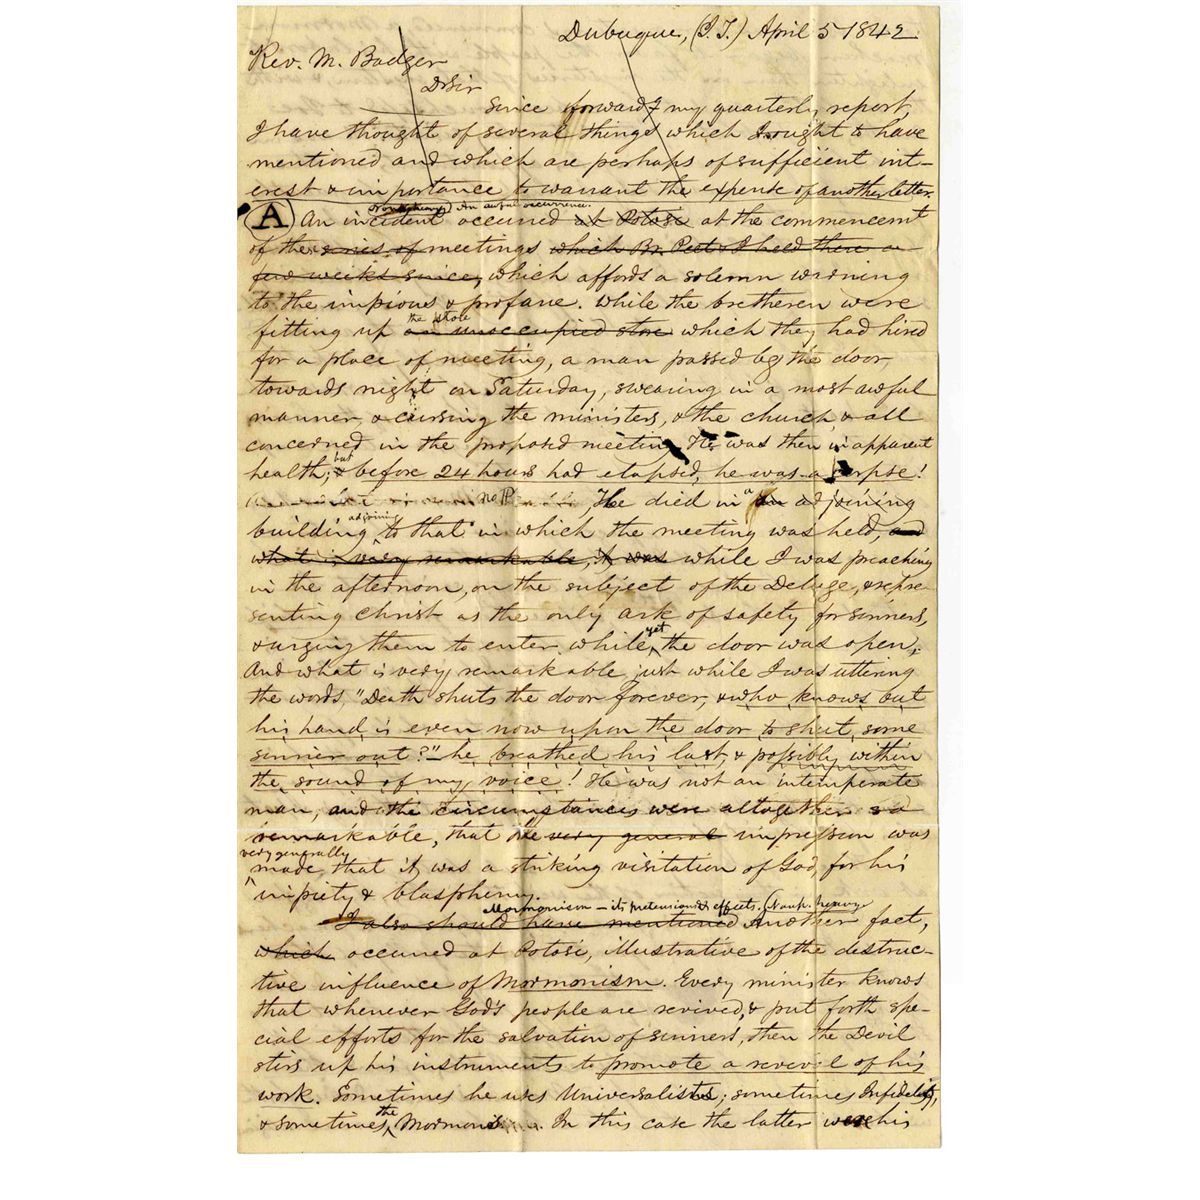 Dubuque, (I. T.) April 5 1842.
Rev. M. Badger
D Sir
Since forward'g my quarterly report,
I have thought of several things which I ought to have
mentioned and which are perhaps of sufficient int-
erest & importance to warrant the expense of another letter.
An awful occurrence.
A An incident occurred at Potosi at the commencemt
of the series of meetings which Br. Peet & I held there a
few weeks since, which affords a solemn warning
to the impious & profane. While the bretheren were
the store
fitting up an unoccupied store which they had hired
for a place of meeting, a man passed by the door,
towards night on Saturday, swearing in a most awful
manner, & cursing the ministers, & the church, & all
concerned in the proposed meeting. He was then in apparent
but
health; & before 24 hours had elapsed, he was a corpse!
no ¶ He died in a an adjoining
adjoining
building to that in which the meeting was held, and
what is very remarkable, it was while I was preaching
in the afternoon, on the subject of the Deluge, & repre-
senting Christ as the only ark of safety for sinners,
yet
& urging them to enter while the door was open;
And what is very remarkable just while I was uttering
the words, "Death shuts the door forever, & who knows but
his hand is even now upon the door to shut some
sinner out?" – he breathed his last, & possibly within
the sound of my voice! He was not an intemperate
man, and the circumstances were altogether so
remarkable, that the very general impression was
very generally
made, that it was a striking visitation of God, for his
impiety & blasphemy.
Mormonism – its pretensions & effects.
I also should have mentioned Another fact,
which occurred at Potosi, illustrative of the destruc-
tive influence of Mormonism. Every minister knows
that whenever God's people are revived, & put forth spe-
cial efforts for the salvation of sinners, then the Devil
stirs up his instruments to promote a revival of his
work. Sometimes he uses Universalists; sometimes Infidelity,
the
& sometimes Mormons. In this case the latter were his